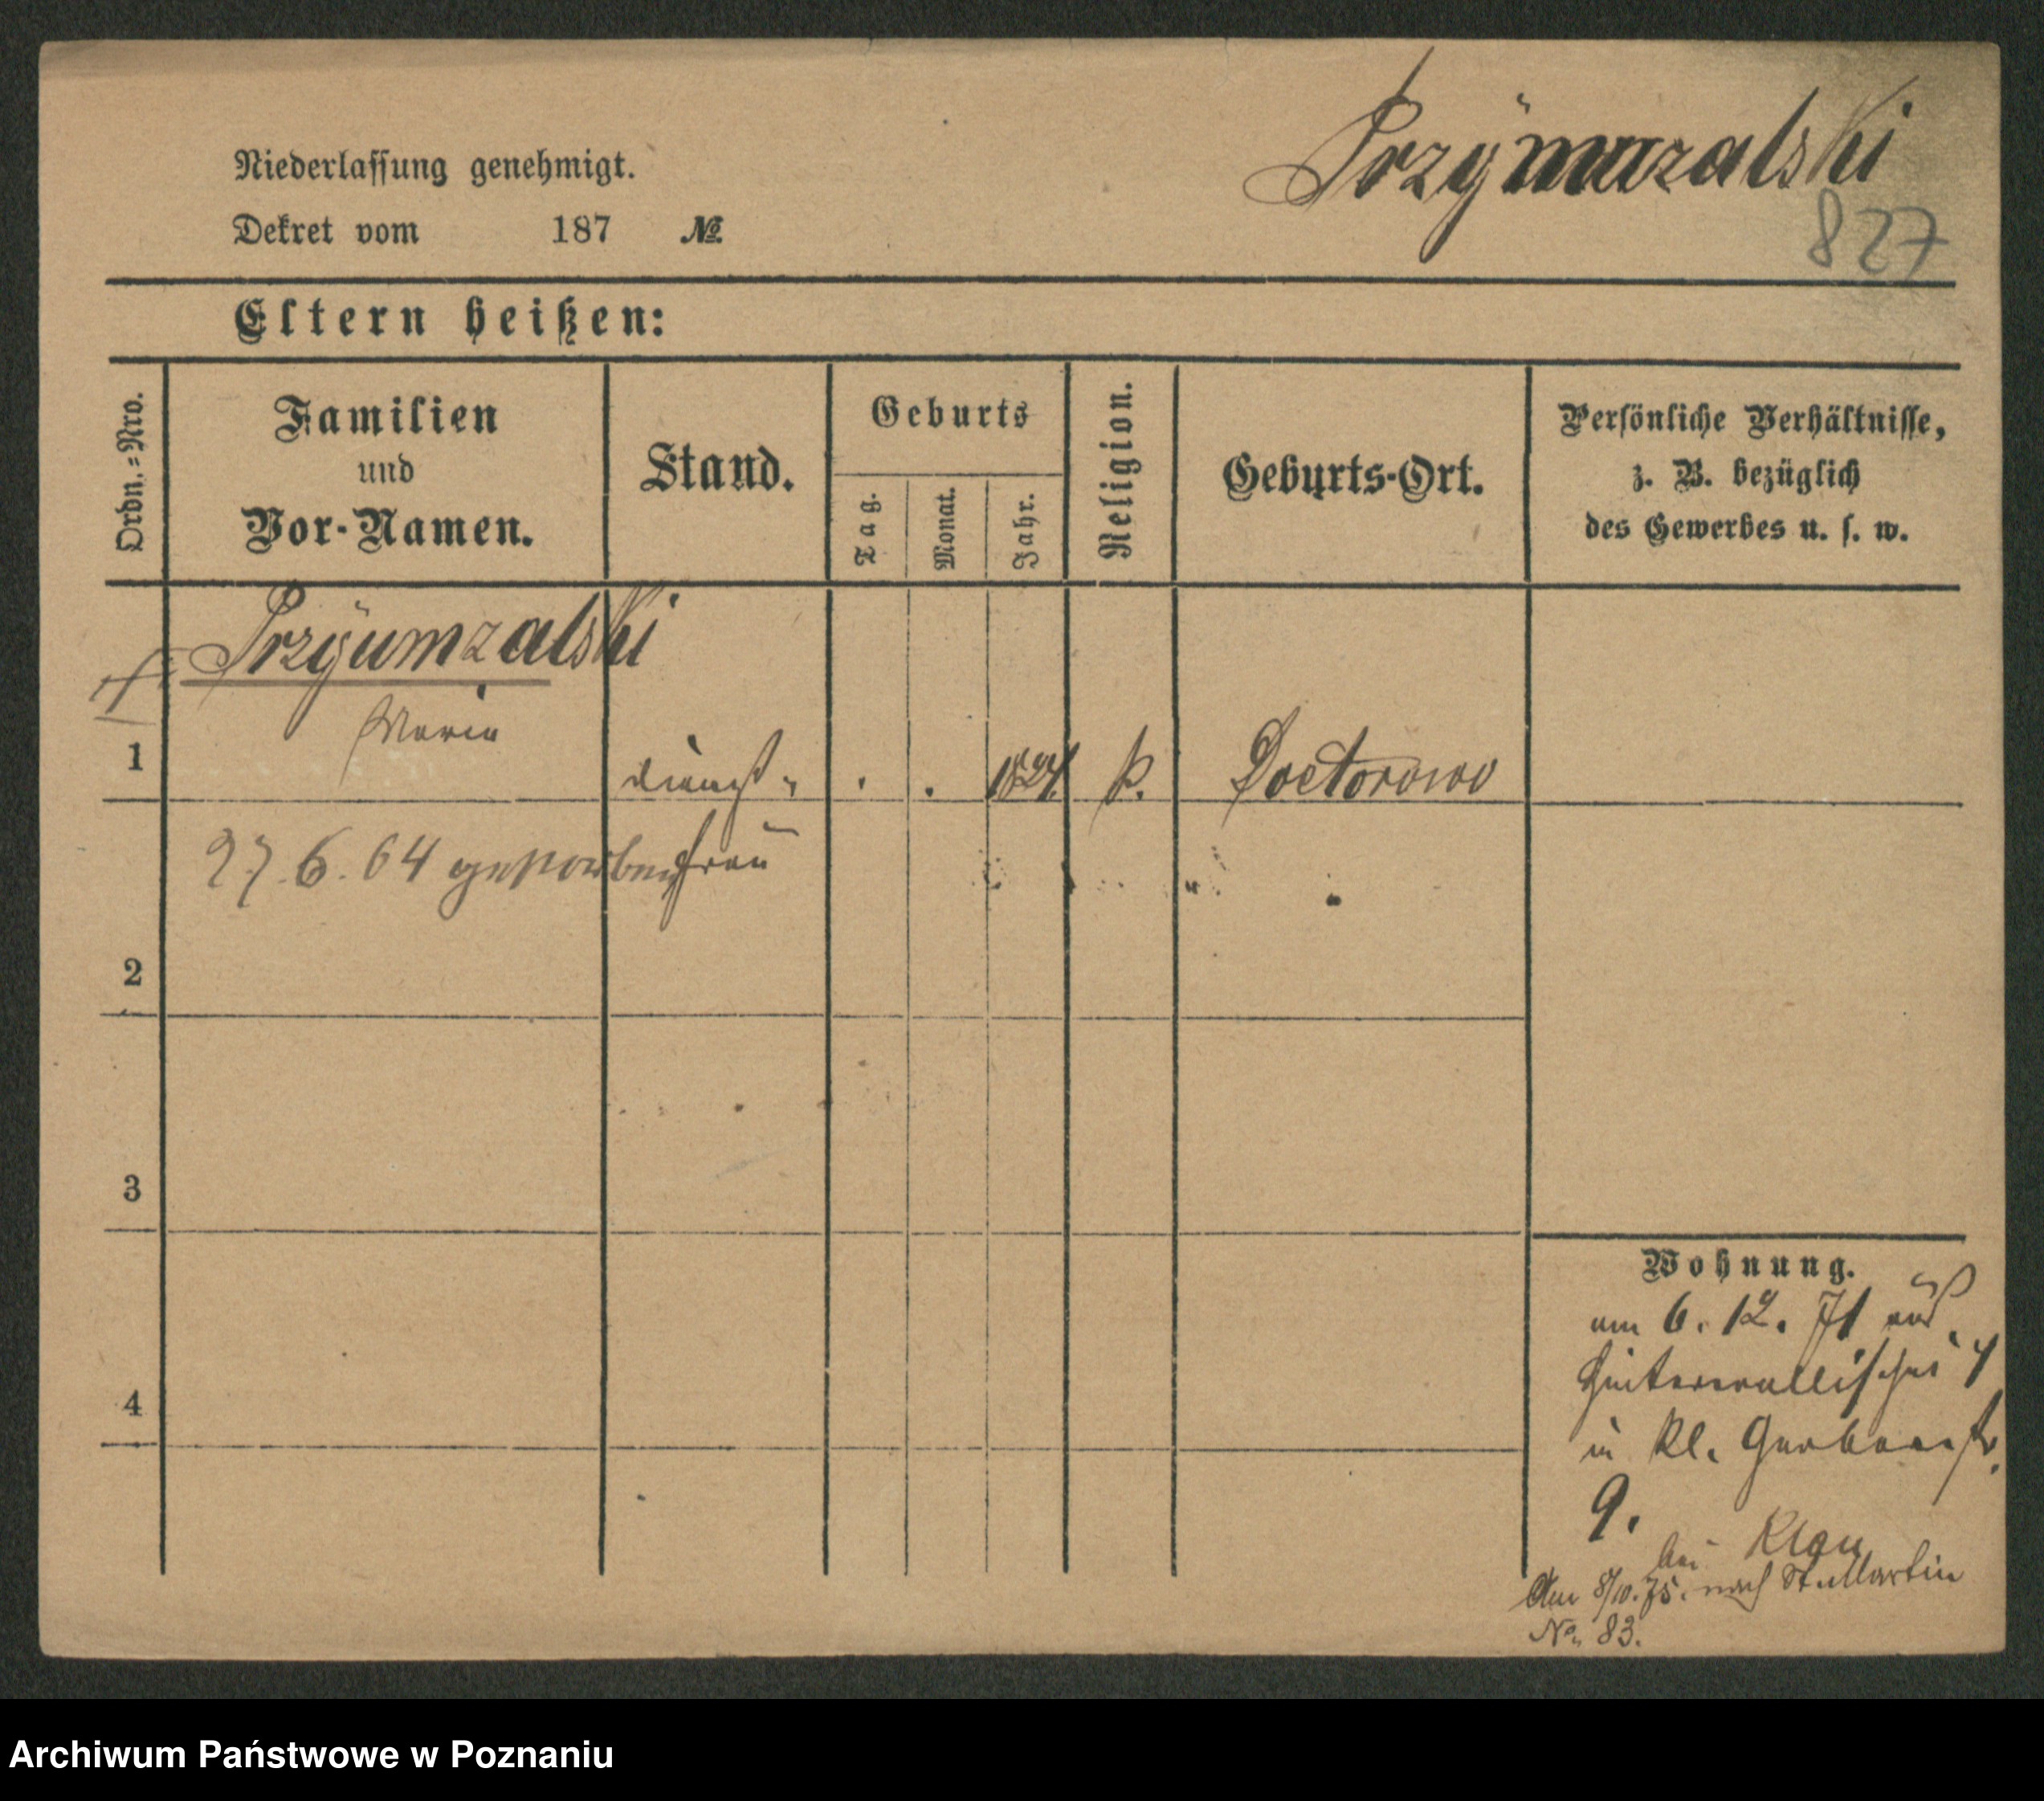 Niederlassung genehmigt.
Dekret vom 187 №
Przÿmuzalski
827
Eltern heißen:
Ordn.=Nro.
Familien
und
Vor-Namen.
Stand.
Geburts
Tag.
Monat.
Jahr.
Religion.
Geburts-Ort.
Persönliche Verhältnisse,
z. B. bezüglich
des Gewerbes u. s. w.
Przÿumzalski
Maria
1
Dienst-
1824.
k.
Doctorowo
gestorben
frau
2
3
4
Wohnung.
am 6. 12. 71 aus
Hinterwallischei 4
in kl. Gerberstr.
9.
bei Klau
Am 8/10. 75. nach St. Martin
No. 83.
Archiwum Państwowe w Poznaniu